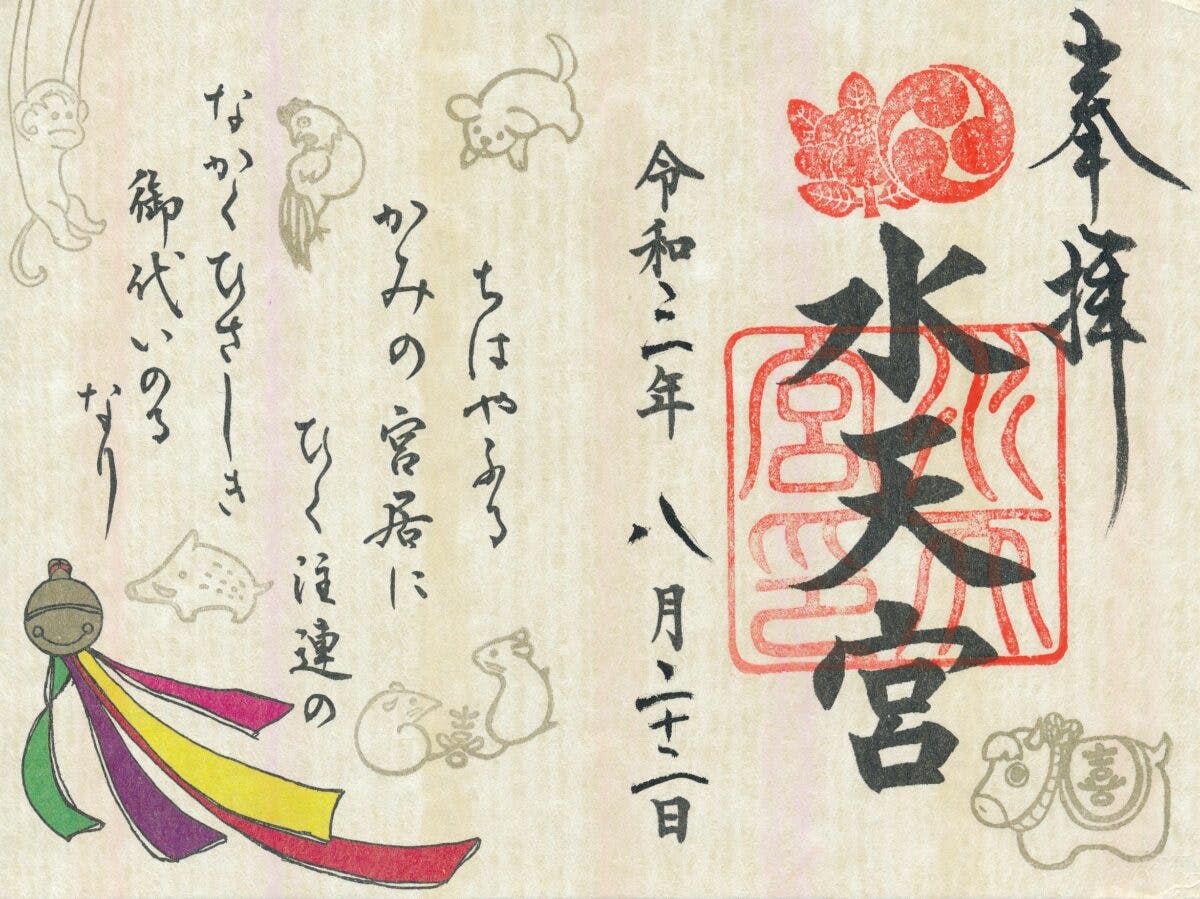 奉拝
水天宮
水天
宮印
喜
令和三年 八月二十二日
ちはやふる
かみの宮居に
ひく注連の
喜
なかくひさしき
御代いのる
なり